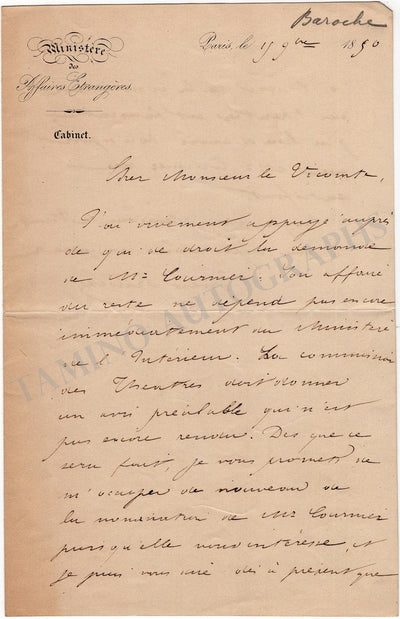 Baroche
Ministère
des
Affaires Étrangères.
Paris, le 15 9bre 1850
Cabinet.
Cher Monsieur le Vicomte,
J'ai vivement appuyé auprès
de qui de droit la demande
de Mr Cournier. Son affaire
du reste ne dépend pas encore
immédiatement du Ministère
de l'Intérieur. La commission
des Théatres doit donner
un avis préalable qui n'est
pas encore rendu. Dès que ce
sera fait, je vous promets de
m'occuper de nouveau de
la nomination de Mr Cournier
puisqu'elle vous intéresse, et
je puis vous dire dès à présent que
TAMINO AUTOGRAPHS